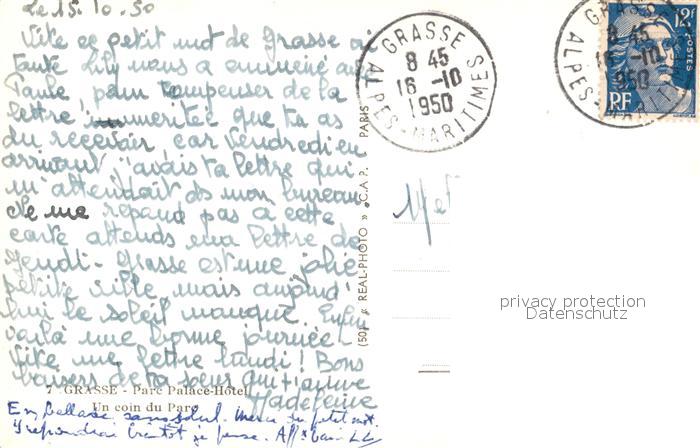 Le 15.10.50
Vite ce petit mot de Grasse où
tante Lily nous a emmené au
Paule, pour t'empenser de la
lettre imméritée que tu as
du recevoir car Vendredi en
arrivant j'avais ta lettre qui
m'attendait ds mon bureau
Ne me répond pas à cette
carte attends ma lettre de
jeudi - Grasse est une jolie
petite ville mais aujourd'
hui le soleil manque. Enfin
voilà une bonne journée -
Vite une lettre lundi ! Bons
baisers de ta sœur qui t'aime
Madeleine
7 GRASSE - Parc Palace-Hôtel
Un coin du Parc
Embellade sans soleil. Merci du petit mot.
Y repondrai bientôt je pense. Aff x
GRASSE
8 45
16 -10
1950
ALPES-MARITIMES
GRASSE
8 45
16 -10
1950
ALPES-MARITIMES
12F
POSTES
RF
(50) « REAL-PHOTO » C.A.P. PARIS
privacy protection
Datenschutz